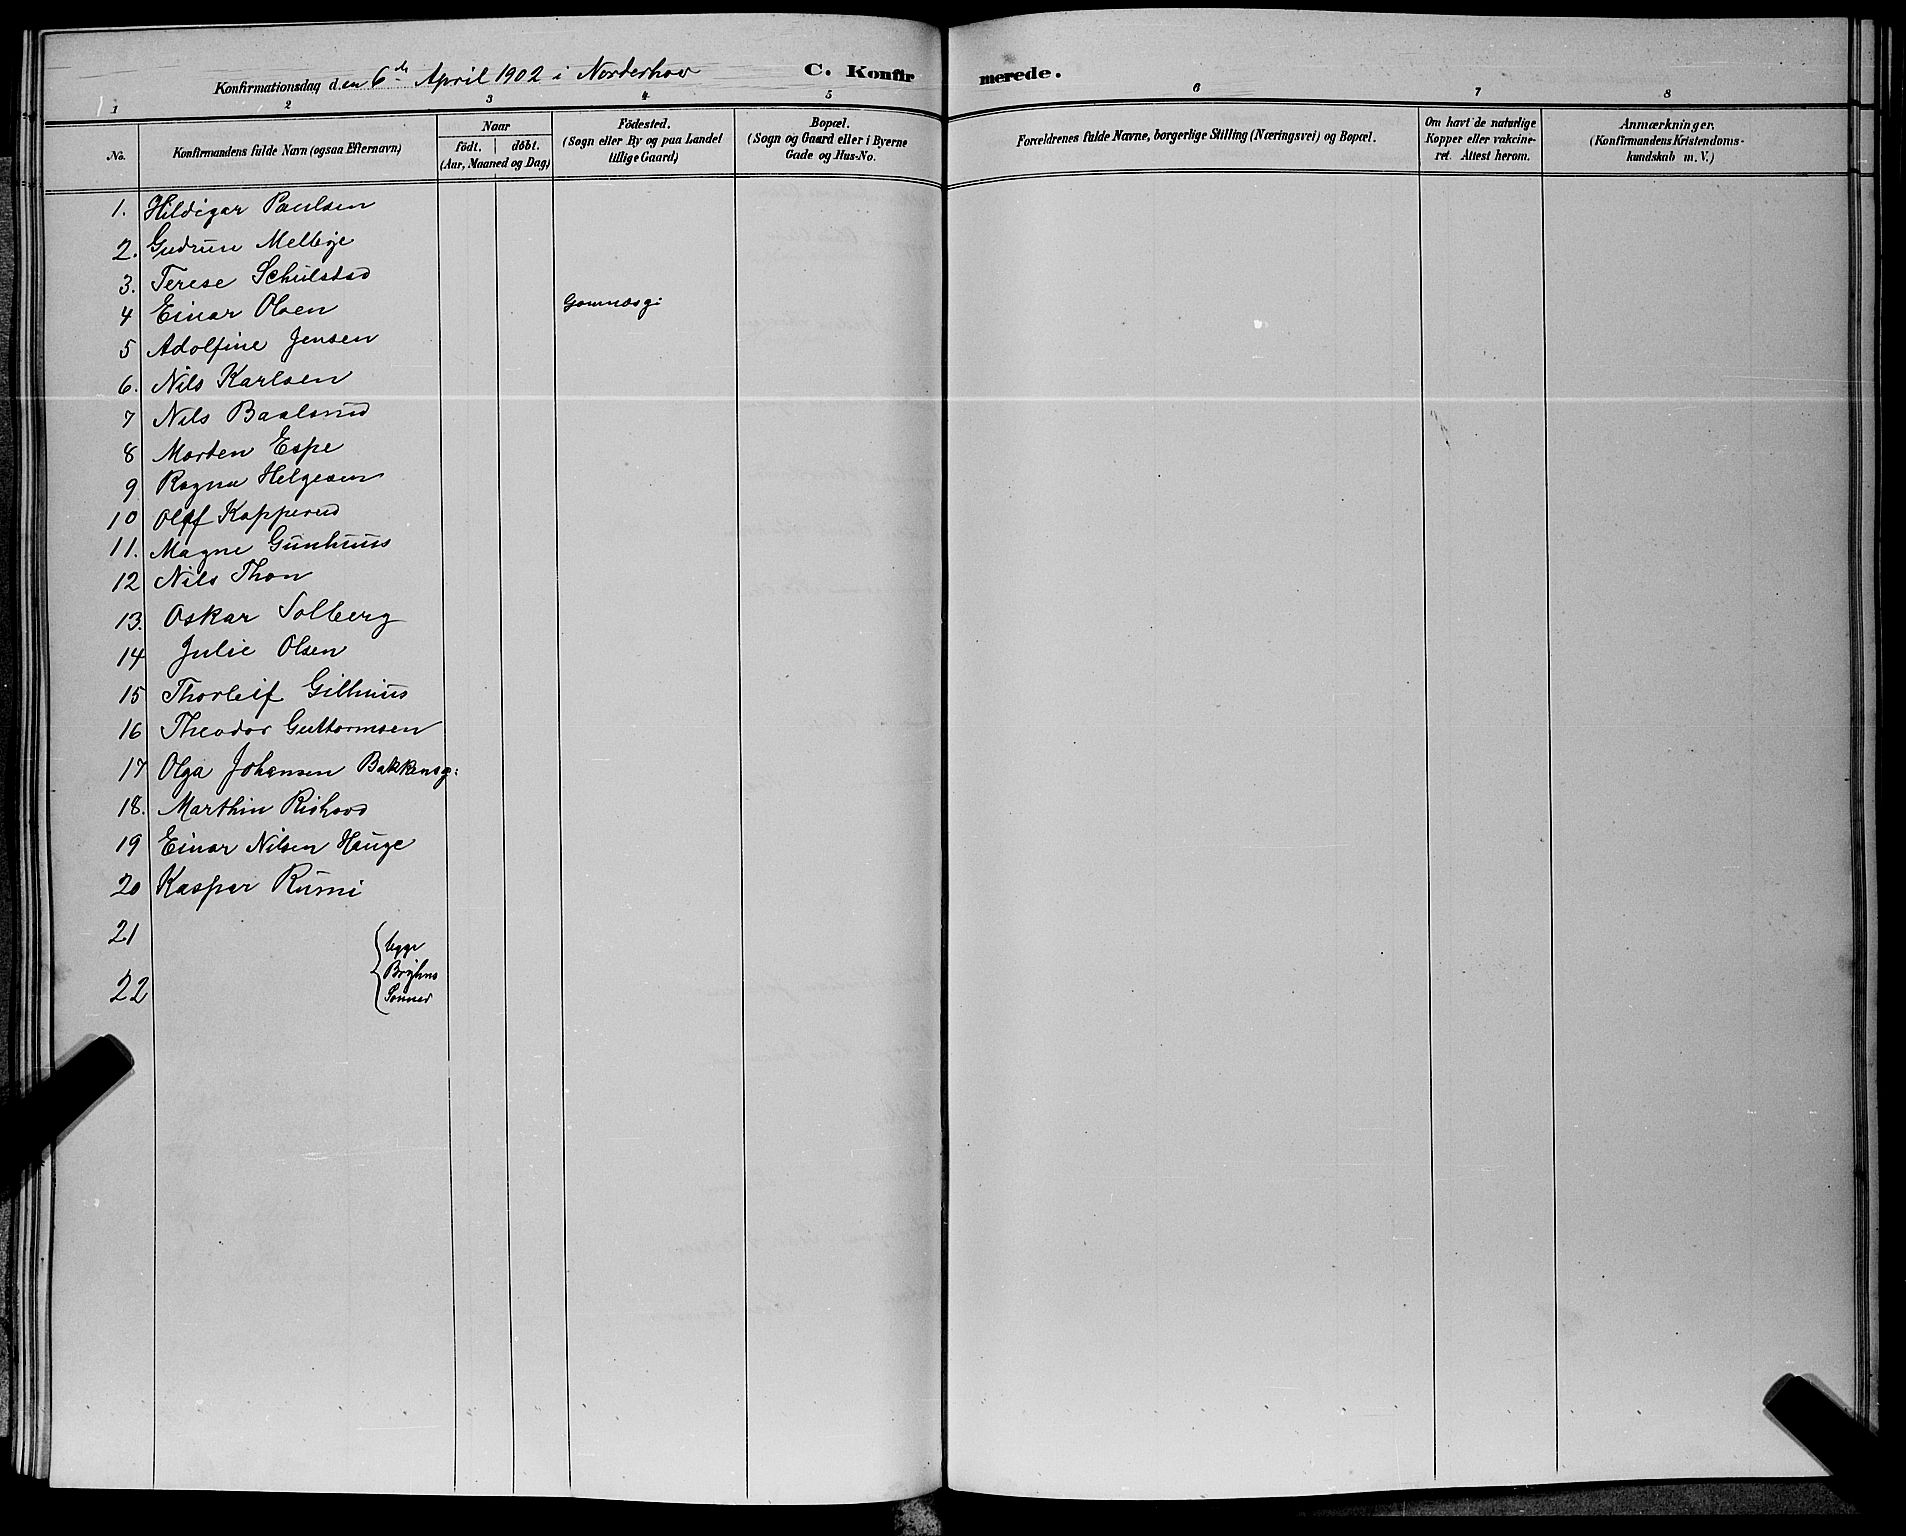 Konfirmationsdag den 6te April 1902 i Norderhov
C. Konfirmerede.
1 2 3 4 5 6 7 8
No.
Konfirmandens fulde Navn (ogsaa Efternavn)
Naar
födt. döbt.
(Aar, Maaned og Dag)
Födested.
(Sogn eller By og paa Landet
tillige Gaard)
Bopæl.
(Sogn og Gaard eller i Byerne
Gade og Hus-No.
Forældrenes fulde Navne, borgerlige Stilling (Næringsvei) og Bopæl.
Om havt de naturlige
Kopper eller vakcine-
ret. Attest herom.
Anmærkninger.
(Konfirmandens Kristendoms-
kundskab m. V.)
1. Hildigar Paulsen
2. Gudrun Melbye
3. Terese Schulstad
4 Einar Olsen
5 Adolfine Jensen
6. Nils Karlsen
7 Nils Baalsrud
8 Morten Espe
9 Ragna Helgesen
10 Olaf Kopperud
11. Magne Gunhuus
12 Nils Thon
13. Oskar Solberg
14 Julie Olsen
15 Thorleif Gilhuus
16 Theodor Guttormsen
17 Olga Johansen Bakkensg:
18. Marthin Rishovd
19 Einar Nilsen Hauge
20 Kaspar Rumi
21
22
begge
Bryhns
Sønner